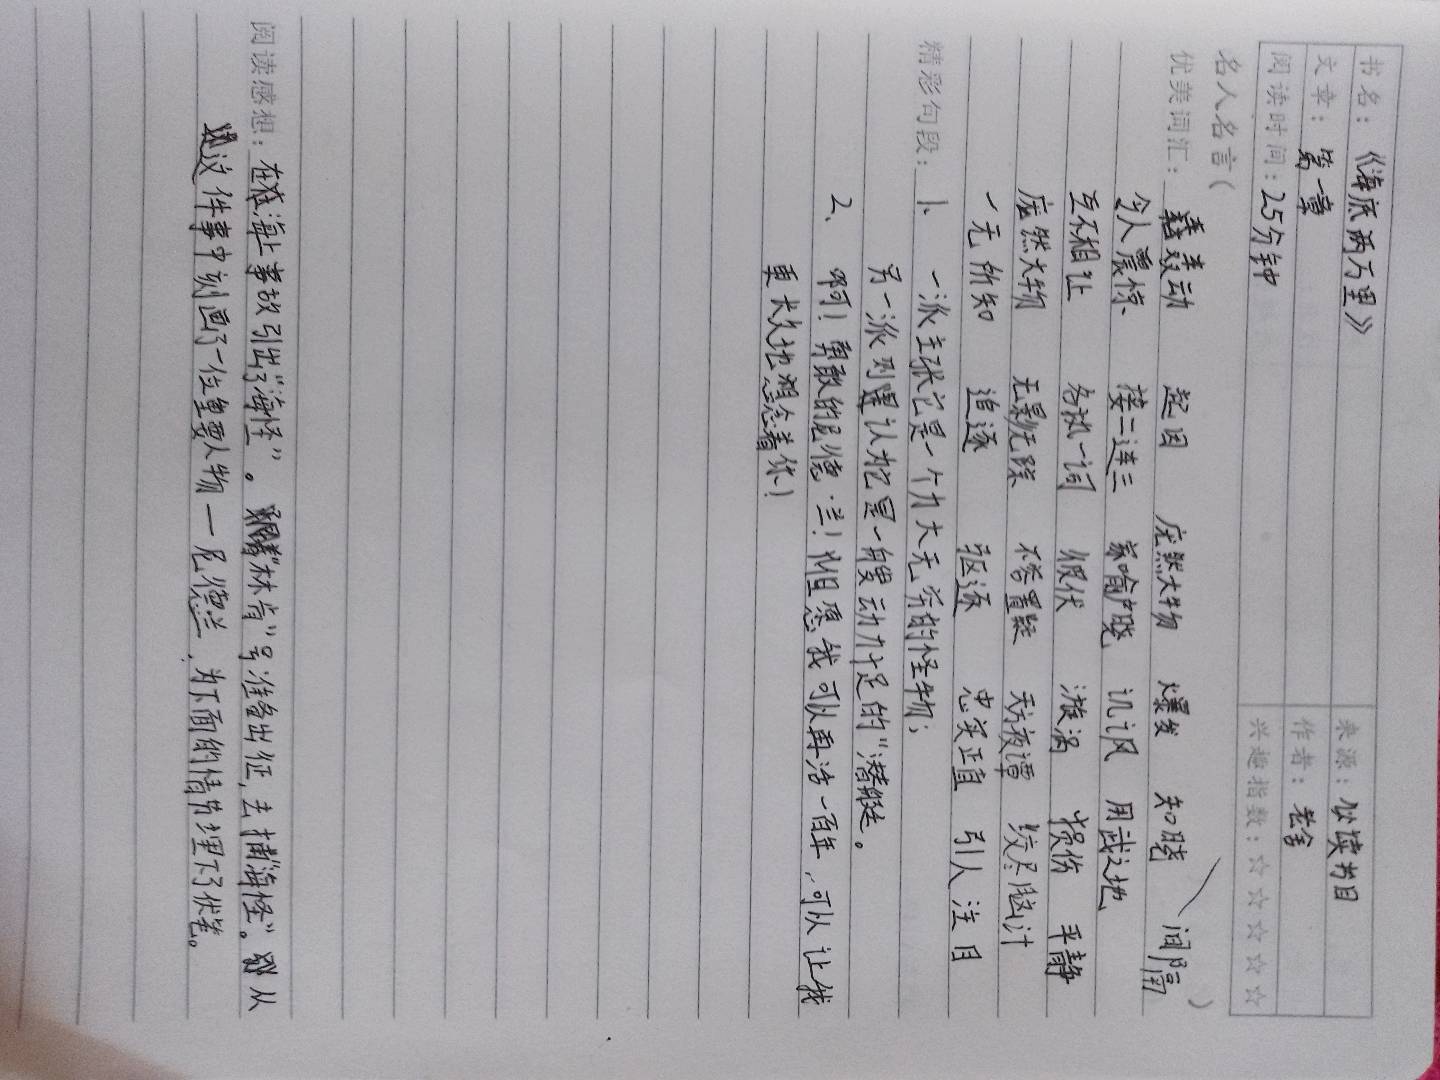 书名：《海底两万里》 来源：必读书目
文章：第一章 作者：老舍
阅读时间：25分钟 兴趣指数：☆☆☆☆☆
名人名言（ ）
优美词汇： 轰动 起因 庞然大物 爆发 知晓 间隔
令人震惊 接二连三 家喻户晓 讥讽 用武之地
互不相让 各执一词 假伏 漩涡 损伤 平静
庞然大物 无影无踪 不容置疑 天方夜谭 绞尽脑汁
一无所知 追逐 驱逐 忠实正直 引人注目
精彩句段： 1、一派主张它是一个力大无穷的怪物；
另一派则认为它是一艘动力十足的“潜艇”。
2、啊！勇敢的尼德·兰！但愿我可以再活一百年，可以让我
更长久地想念着你！
阅读感想：在海上事故引出了“海怪”。“林肯”号准备出征，去捕“海怪”。从
这件事中刻画了一位重要人物—尼德兰，为下面的情节埋下了伏笔。